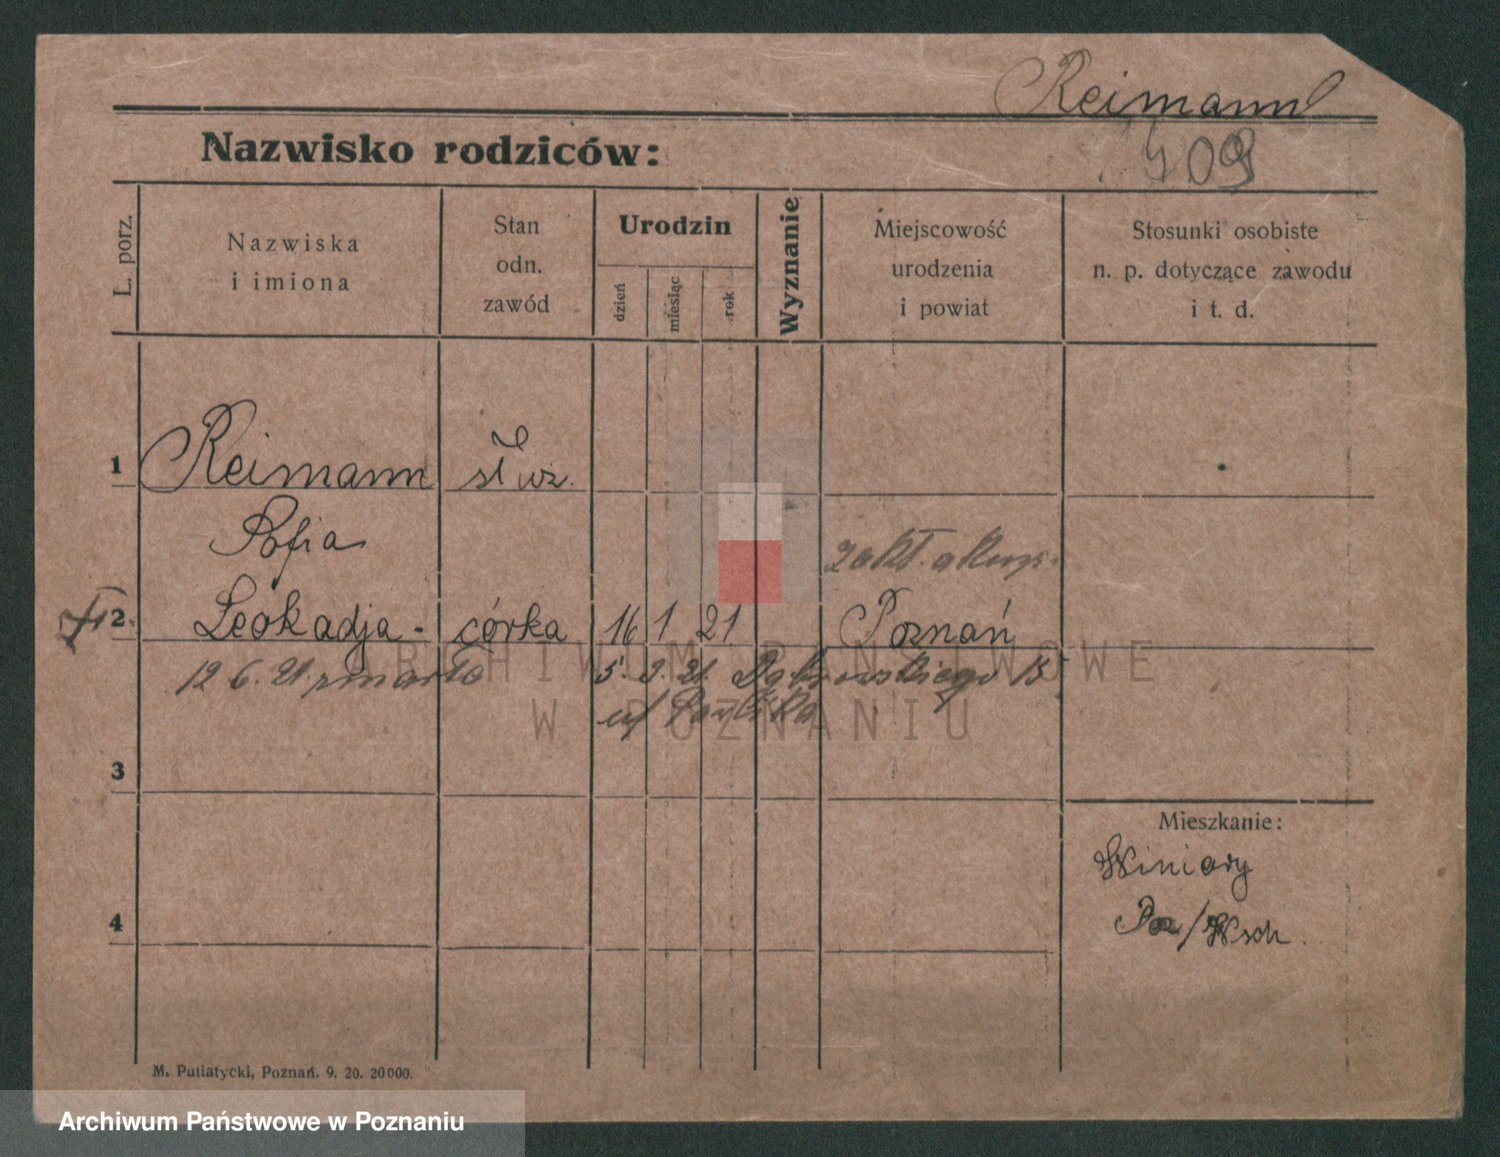 Reimann
409
Nazwisko rodziców:
L. porz.
Nazwiska
i imiona
Stan
odn.
zawód
Urodzin
dzień
miesiąc
rok
Wyznanie
Miejscowość
urodzenia
i powiat
Stosunki osobiste
n. p. dotyczące zawodu
i t. d.
1 Reimann służ.
Zofia
zakł.
2. Leokadja - córka 16 1 21 Poznań
12 6. 21 zmarła 5. 3. 21. Dąbrowskiego 15
u/
3
Mieszkanie:
Winiary
Po/Wsch.
4
M. Putiatycki, Poznań. 9. 20. 20000.
ARCHIWUM PAŃSTWOWE
W POZNANIU
Archiwum Państwowe w Poznaniu